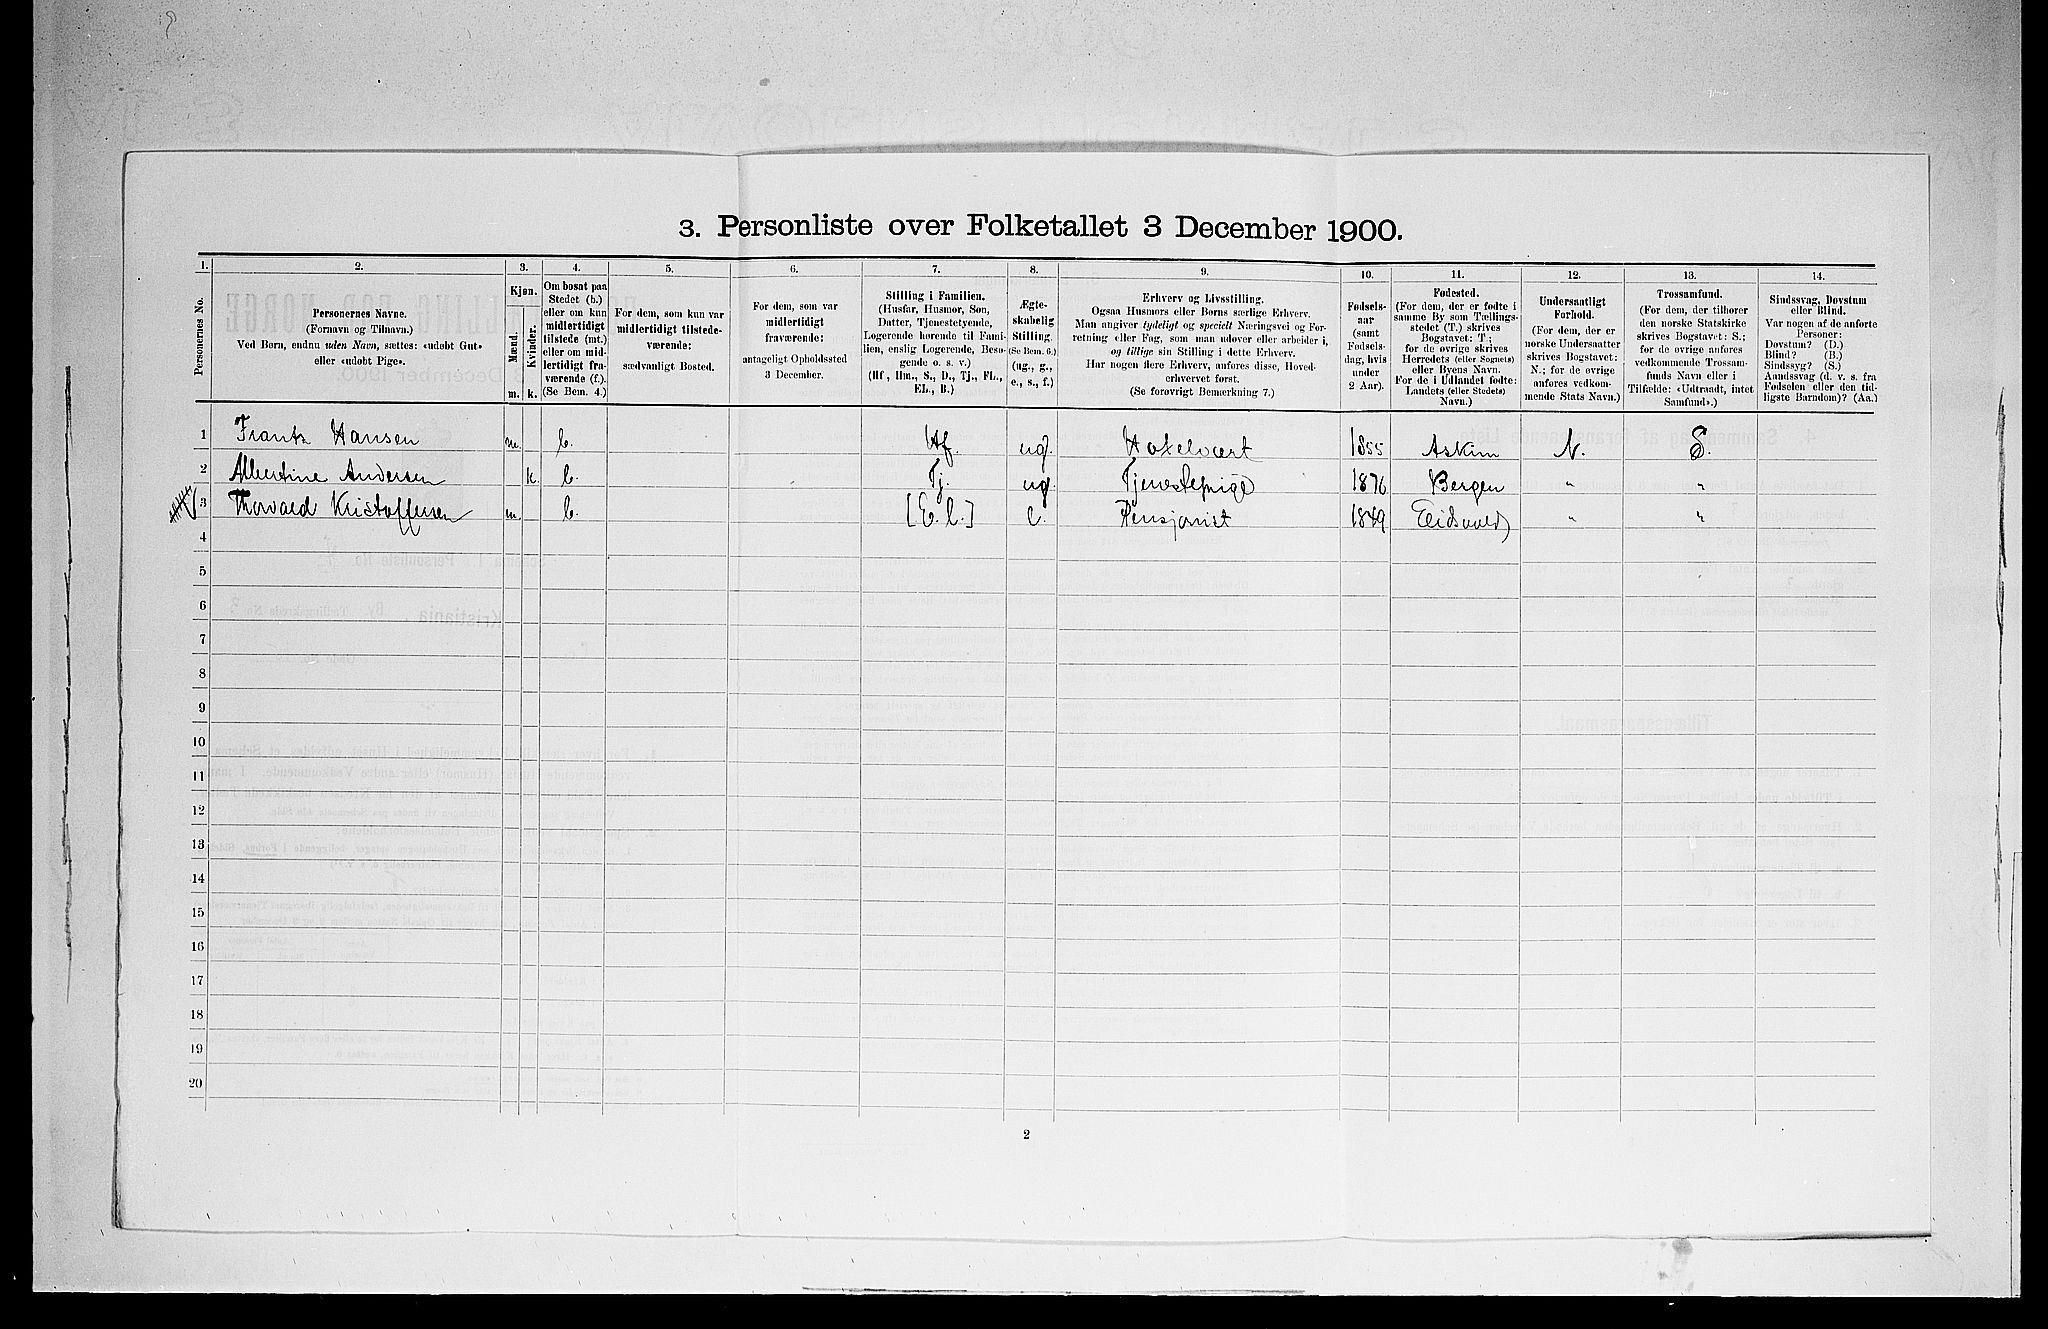 3. Personliste over Folketallet 3 December 1900.
1. 2. 3. 4. 5. 6. 7. 8. 9. 10. 11. 12. 13. 14.
Personernes No.
Personernes Navne.
(Fornavn og Tilnavn.)
Ved Børn, endnu uden Navn, sættes: «udøbt Gut»
eller «udøbt Pige».
Kjøn.
Mænd.
Kvinder.
m. k.
Om bosat paa
Stedet (b.)
eller om kun
midlertidigt
tilstede (mt.)
eller om mid-
lertidigt fra-
værende (f.).
(Se Bem. 4.)
For dem, som kun var
midlertidigt tilstede-
værende:
sædvanligt Bosted.
For dem, som var
midlertidigt
fraværende:
antageligt Opholdssted
3 December.
Stilling i Familien.
(Husfar, Husmor, Søn,
Datter, Tjenestetyende,
Logerende hørende til Fami-
lien, enslig Logerende, Besø-
gende o. s. v.)
(Hf., Hm., S., D., Tj., FL.,
EL., B.)
Ægte-
skabelig
Stilling.
(Se Bem. 6.)
(ug., g.,
e., s., f.)
Erhverv og Livsstilling.
Ogsaa Husmors eller Børns særlige Erhverv.
Man angiver tydeligt og specielt Næringsvei og For-
retning eller Fag, som man udøver eller arbeider i,
og tillige sin Stilling i dette Erhverv.
Har nogen flere Erhverv, anføres disse, Hoved-
erhvervet først.
(Se forøvrigt Bemærkning 7.)
Fødsels-
aar
(samt
Fødsels-
dag, hvis
under
2 Aar).
Fødested.
(For dem, der er fødte i
samme By som Tællings-
stedet (T.) skrives
Bogstavet: T;
for de øvrige skrives
Herredets (eller Sognets)
eller Byens Navn.
For de i Udlandet fødte:
Landets (eller Stedets)
Navn.)
Undersaatligt
Forhold.
(For dem, der er
norske Undersaatter
skrives Bogstavet:
N.; for de øvrige
anføres vedkom-
mende Stats Navn.)
Trossamfund.
(For dem, der tilhører
den norske Statskirke
skrives Bogstavet: S.;
for de øvrige anføres
vedkommende Trossam-
funds Navn eller i
Tilfælde: «Udtraadt, intet
Samfund».)
Sindssvag, Døvstum
eller Blind.
Var nogen af de anførte
Personer:
Døvstum? (D.)
Blind? (B.)
Sindssyg? (S.)
Aandssvag (d. v. s. fra
Fødselen eller den tid-
ligste Barndom)? (Aa.)
1 Frantz Hansen m. b. Hf. ug. Hotelvært 1855 Askim N. S.
2 Albertine Andersen k b. Tj. ug. Tjenestepige 1876 Bergen " "
3 Thorvald Kristoffersen m. b. [E. l.] e. Pensjonist 1849 Eidsvold " "
4
5
6
7
8
9
10
11
12
13
14
15
16
17
18
19
20
2